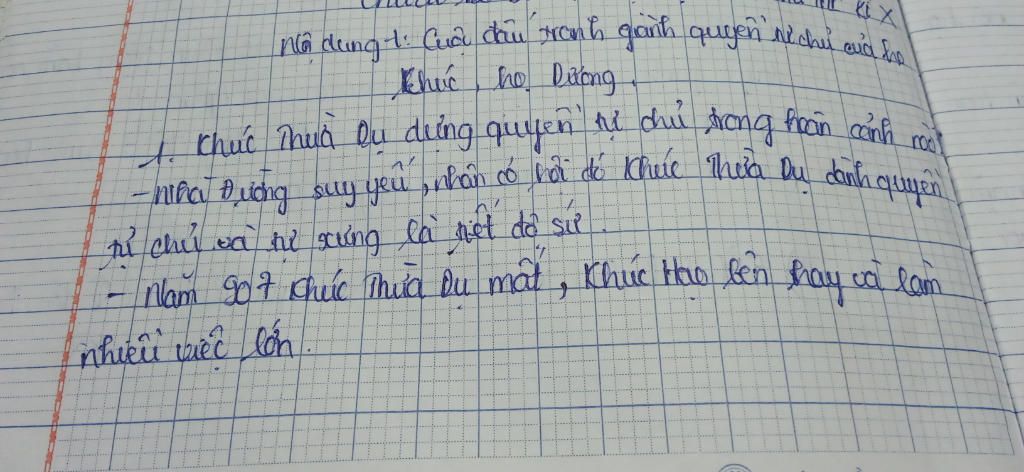 kỉ X
Nội dung 1: Cuộc đấu tranh giành quyền tự chủ của họ
Khúc, họ Dương.
1. Khúc Thừa Dụ dựng quyền tự chủ trong hoàn cảnh nào?
- Nhà Đường suy yếu, nhân cơ hội đó Khúc Thừa Dụ dành quyền
tự chủ và tự xưng là tiết độ sứ.
- Năm 907 Khúc Thừa Dụ mất, Khúc Hạo lên thay và làm
nhiều việc lớn.